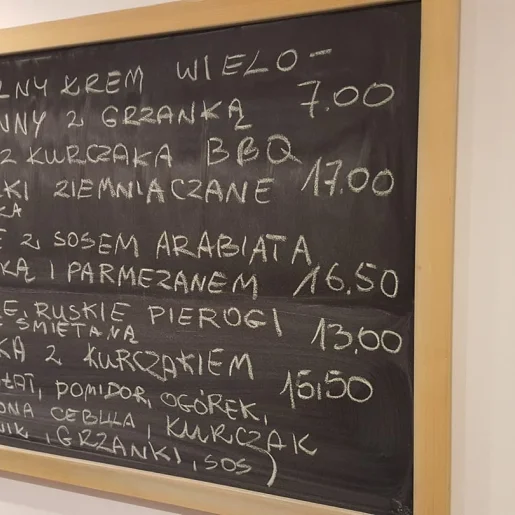 ZNY KREM WIELO-
NNY Z GRZANKĄ 7.00
Z KURCZAKA BBQ
KI ZIEMNIACZANE 17.00
KA
E Z SOSEM ARABIATA
KĄ I PARMEZANEM 16.50
E, RUSKIE PIEROGI 13,00
E ŚMIETANĄ
KA Z KURCZAKIEM
ŁAT, POMIDOR, OGÓREK, 15,50
ONA CEBULA, KURCZAK
NIK, GRZANKI, SOS